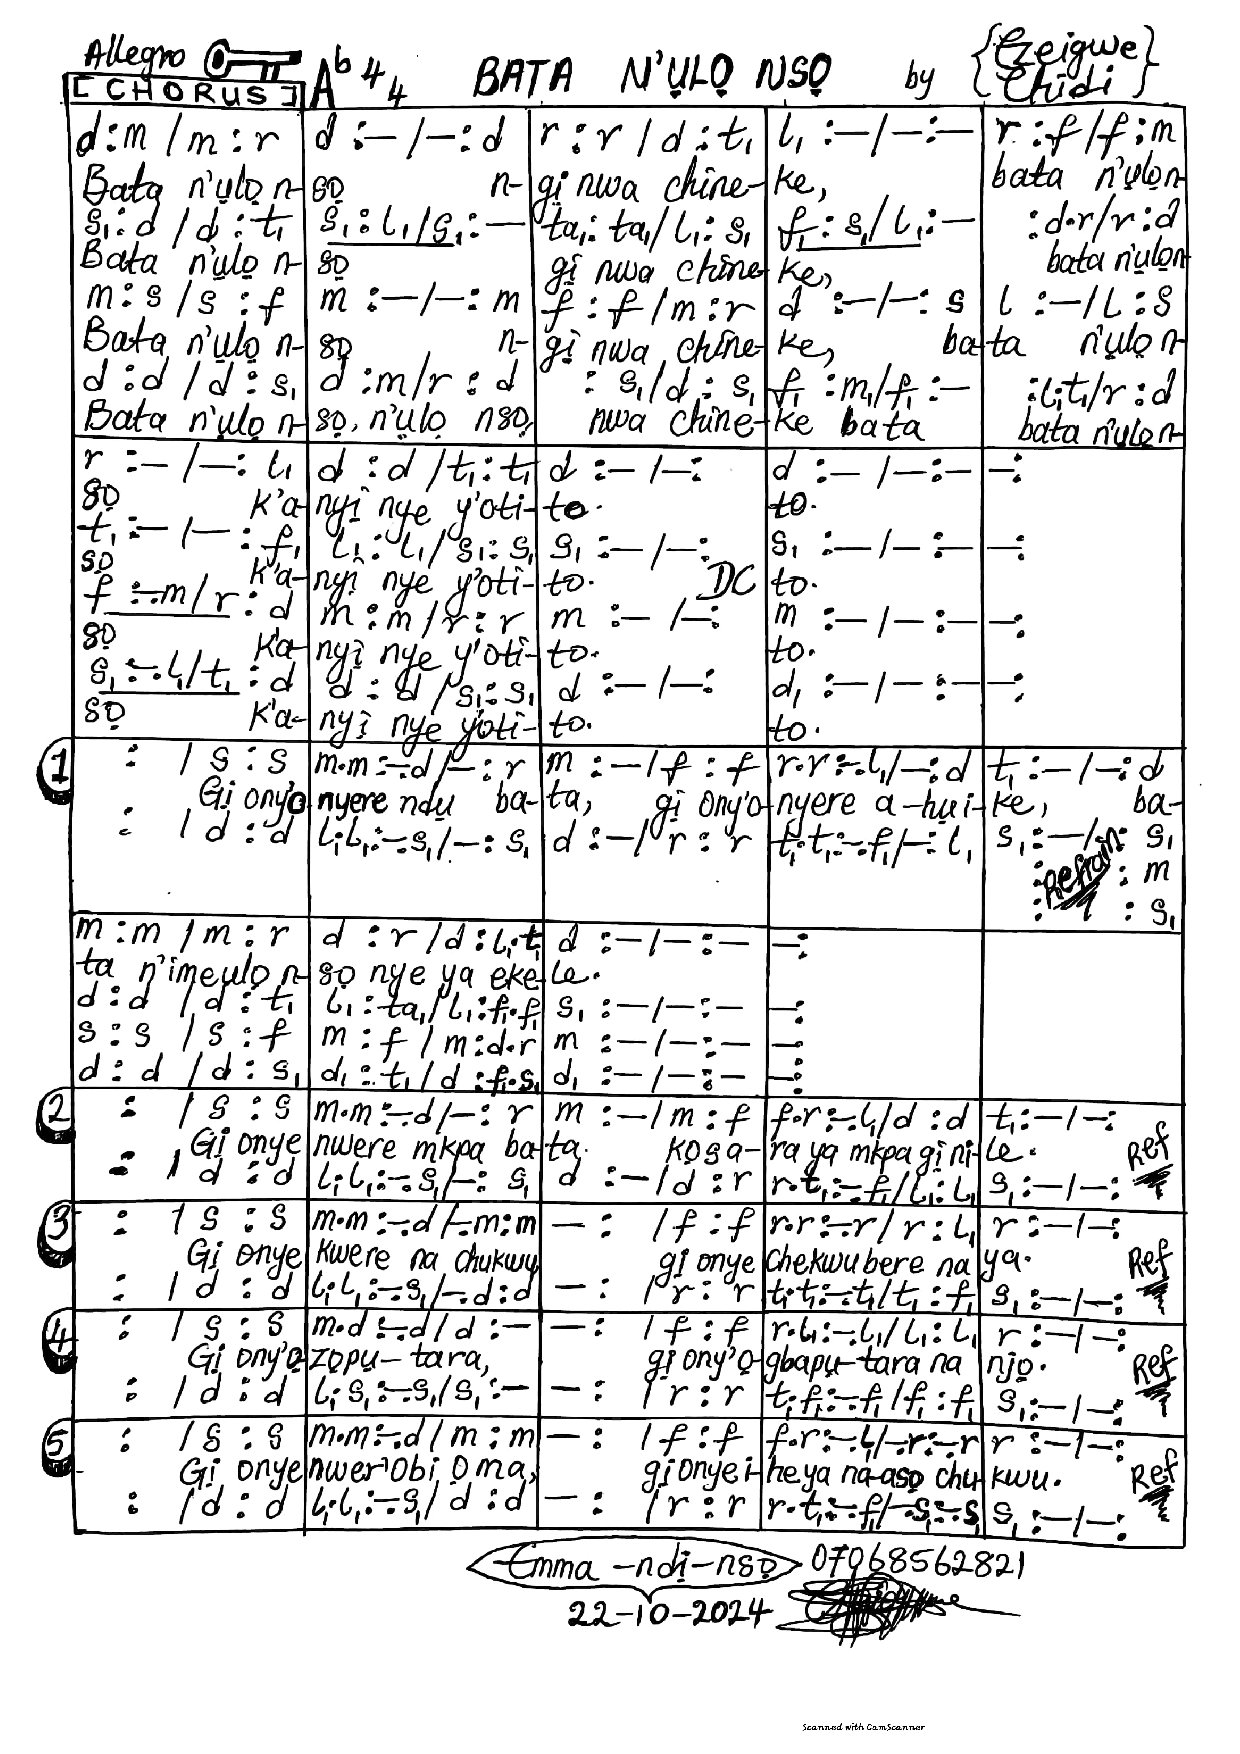 Allegro
[CHORUS] A♭ 4/4 BATA N'ỤLỌ NSỌ by {Ezeigwe Chidi}
d:m / m:r d :—/—:d r:r / d:t₁ l₁ :—/—:— r:f/f:m
Bata n'ụlọ n- sọ n- gị nwa chine- ke, bata n'ụlọn-
s₁:d / d:t₁ s₁:l₁/s₁:— ta₁:ta₁/l₁:s₁ f₁:s₁/l₁:— :d.r/r:d
Bata n'ụlọ n- sọ gị nwa chine- ke, bata n'ụlọn-
m:s / s:f m :—/—:m f:f/m:r d :—/—:s l :—/l:s
Bata n'ụlọ n- sọ n- gị nwa chine- ke, ba- ta n'ụlọ n-
d:d / d:s₁ d:m/r:d :s₁/d:s₁ f₁:m₁/f₁:— :l₁.t₁/r:d
Bata n'ụlọ n- sọ, n'ụlọ nsọ, nwa chine- ke bata bata n'ụlọn-
r :—/—:l₁ d:d/t₁:t₁ d :—/—: d :—/—:— —:
sọ k'a- nyị nye y'oti- to. to.
t₁ :—/—:f₁ l₁:l₁/s₁:s₁ s₁ :—/—: s₁ :—/—:— —:
sọ k'a- nyị nye y'oti- to. DC to.
f :—.m/r:d m:m/r:r m :—/—: m :—/—:— —:
sọ k'a- nyị nye y'oti- to. to.
s₁ :—.l₁/t₁:d d:d/s₁:s₁ d :—/—: d₁ :—/—:— —:
sọ k'a- nyị nye y'oti- to. to.
1 : / s:s m.m:—.d/—:r m :—/f:f r.r:—.l₁/—:d t₁:—/—:d
Gị ony'o nyere ndụ ba- ta, gị ony'o- nyere a-hụ i- ke, ba-
: / d:d l₁.l₁:—.s₁/—:s₁ d:—/r:r t₁.t₁:—.f₁/—:l₁ s₁:—/—:s₁
: Refrain :m
: :s₁
m:m / m:r d:r/d:l₁.t₁ d :—/—:— —:
ta n'imeụlọ n- sọ nye ya ekele.
d:d / d:t₁ l₁:ta₁/l₁:f₁.f₁ s₁ :—/—:— —:
s:s / s:f m:f/m:d.r m :—/—:— —:
d:d / d:s₁ d₁:t₁/d:f₁.s₁ d₁ :—/—:— —:
2 : / s:s m.m:—.d/—:r m :—/m:f f.r:—.l₁/d:d t₁:—/—:
Gị onye nwere mkpa ba- ta. kọsa- ra ya mkpa gị ni- le. Ref
: / d:d l₁.l₁:—.s₁/—:s₁ d :—/d:r r.t₁:—.f₁/l₁:l₁ s₁:—/—:
3 : / s:s m.m:—.d/—.m:m —: /f:f r.r:—.r/r:l₁ r:—/—:
Gị onye kwere na chukwu gị onye chekwubere na ya. Ref
: / d:d l₁.l₁:—.s₁/—.d:d —: /r:r t₁.t₁:—.t₁/t₁:f₁ s₁:—/—:
4 : / s:s m.d:—.d/d:— —: /f:f r.l₁:—.l₁/l₁:l₁ r:—/—:
Gị ony'ọ- zọpụ-tara, gị ony'ọ- gbapụ-tara na njọ. Ref
: / d:d l₁.s₁:—.s₁/s₁:— —: /r:r t₁.f₁:—.f₁/f₁:f₁ s₁:—/—:
5 : / s:s m.m:—.d/m:m —: /f:f f.r:—.l₁/—.r:—.r r:—/—:
Gị onye nwer'Obi Ọma, gị onye i- he ya na-asọ chu- kwu. Ref
: / d:d l₁.l₁:—.s₁/d:d —: /r:r r.t₁:—.f₁/—.s₁:—.s₁ s₁:—/—:
Emma -ndị-nsọ 07068562821
22-10-2024
Scanned with CamScanner